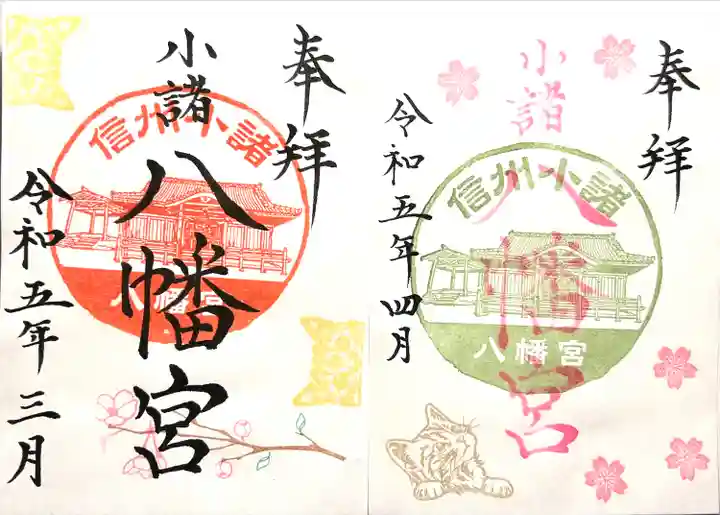 奉拝
信州小諸
八幡宮
小諸八幡宮
令和五年三月
奉拝
信州小諸
八幡宮
小諸八幡宮
令和五年四月